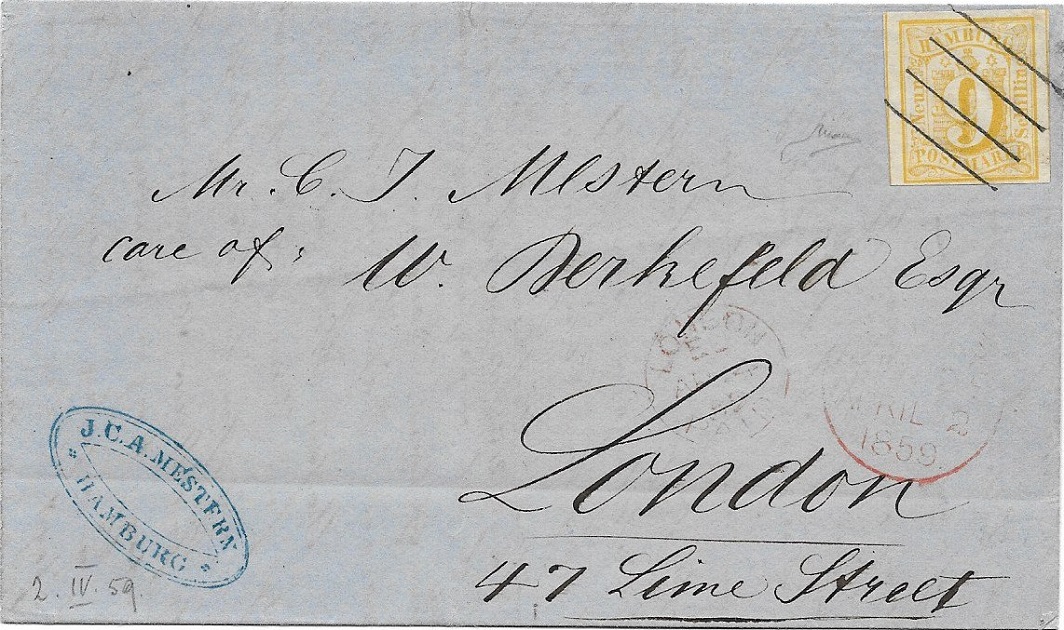 HAMBURG
Neun
9
Schilling
POSTMARKE
Mr. C. J. Mestern
care of: W. Berkefeld Esqr
LONDON
PAID
APRIL 2
1859
London
47 Lime Street
J. C. A. MESTERN
* HAMBURG *
2. IV. 59.